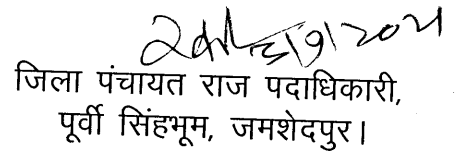 जिला पंचायत राज पदाधिकारी,
पूर्वी सिंहभूम, जमशेदपुर।